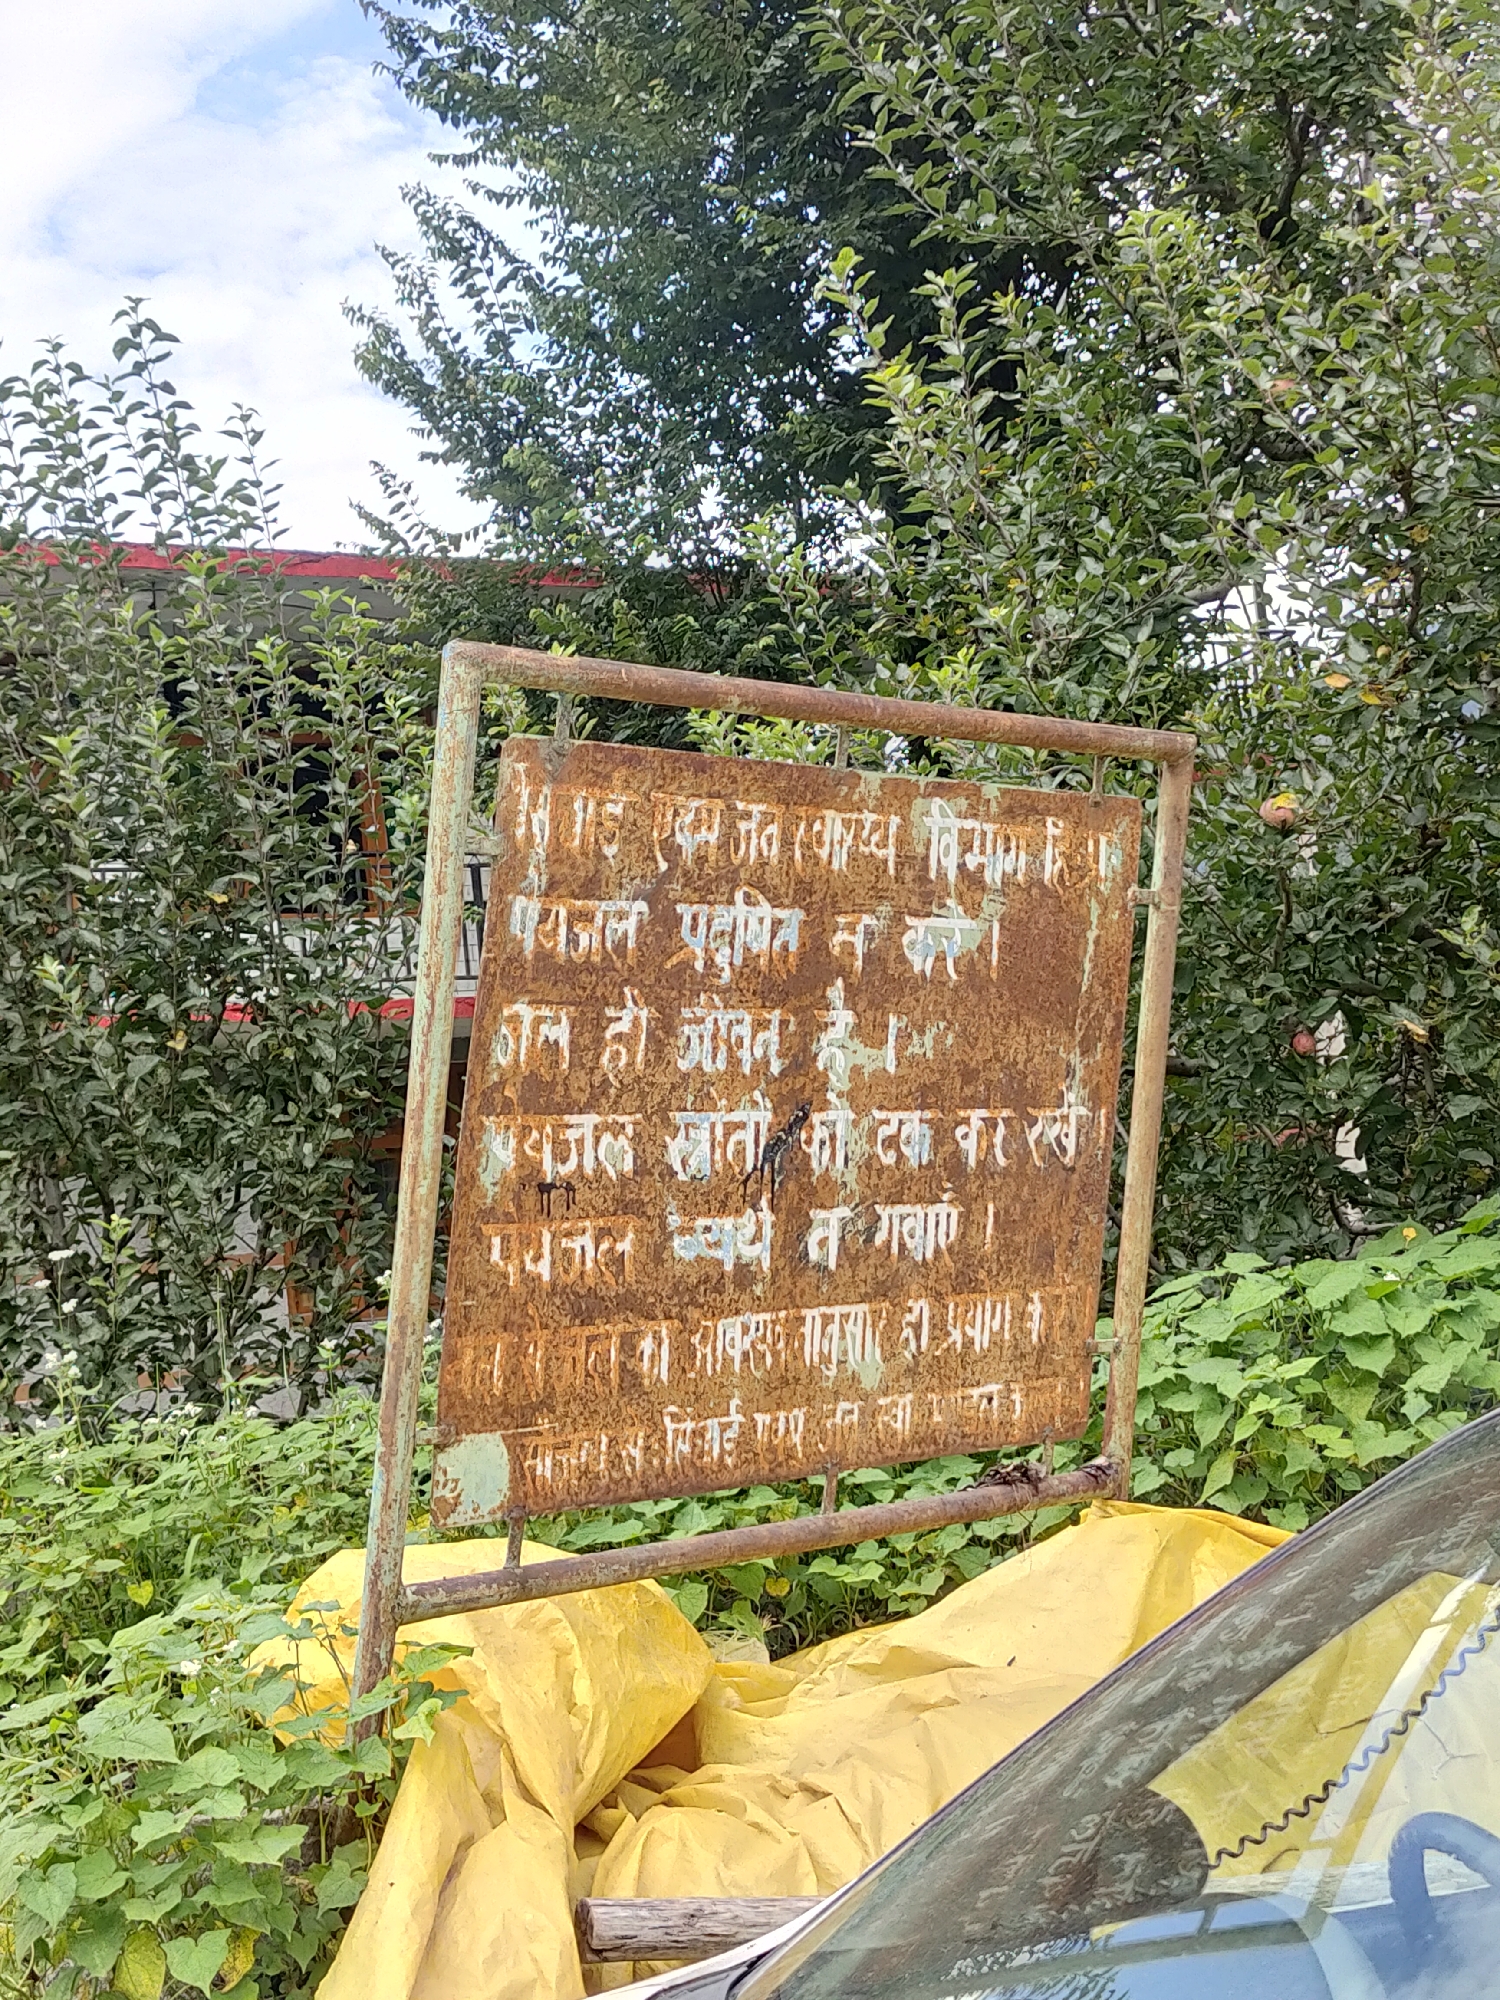 सिंचाई एवम जन स्वास्थ्य विभाग हि.प्र.
पेयजल प्रदुषित न करें।
जल ही जीवन है।
पेयजल स्त्रोतों को ढक कर रखें।
पेयजल व्यर्थ न गवाएँ।
जल को आवश्यकतानुसार ही प्रयोग करें
सौजन्य से: सिंचाई एवम् जन स्वा मण्डल